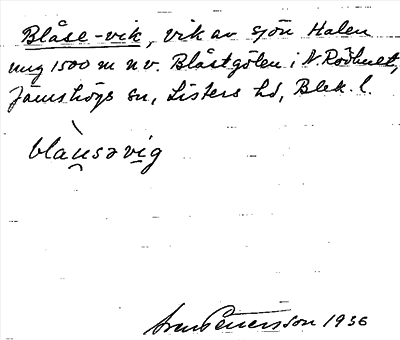 Blåse-vik, vik av sjön Halen
ung 1500 m n v. Blåstgölen i N. Rödhult,
Jämshögs sn, Listers hd, Blek. l.
blau̯səvig
Sven Petersson 1936